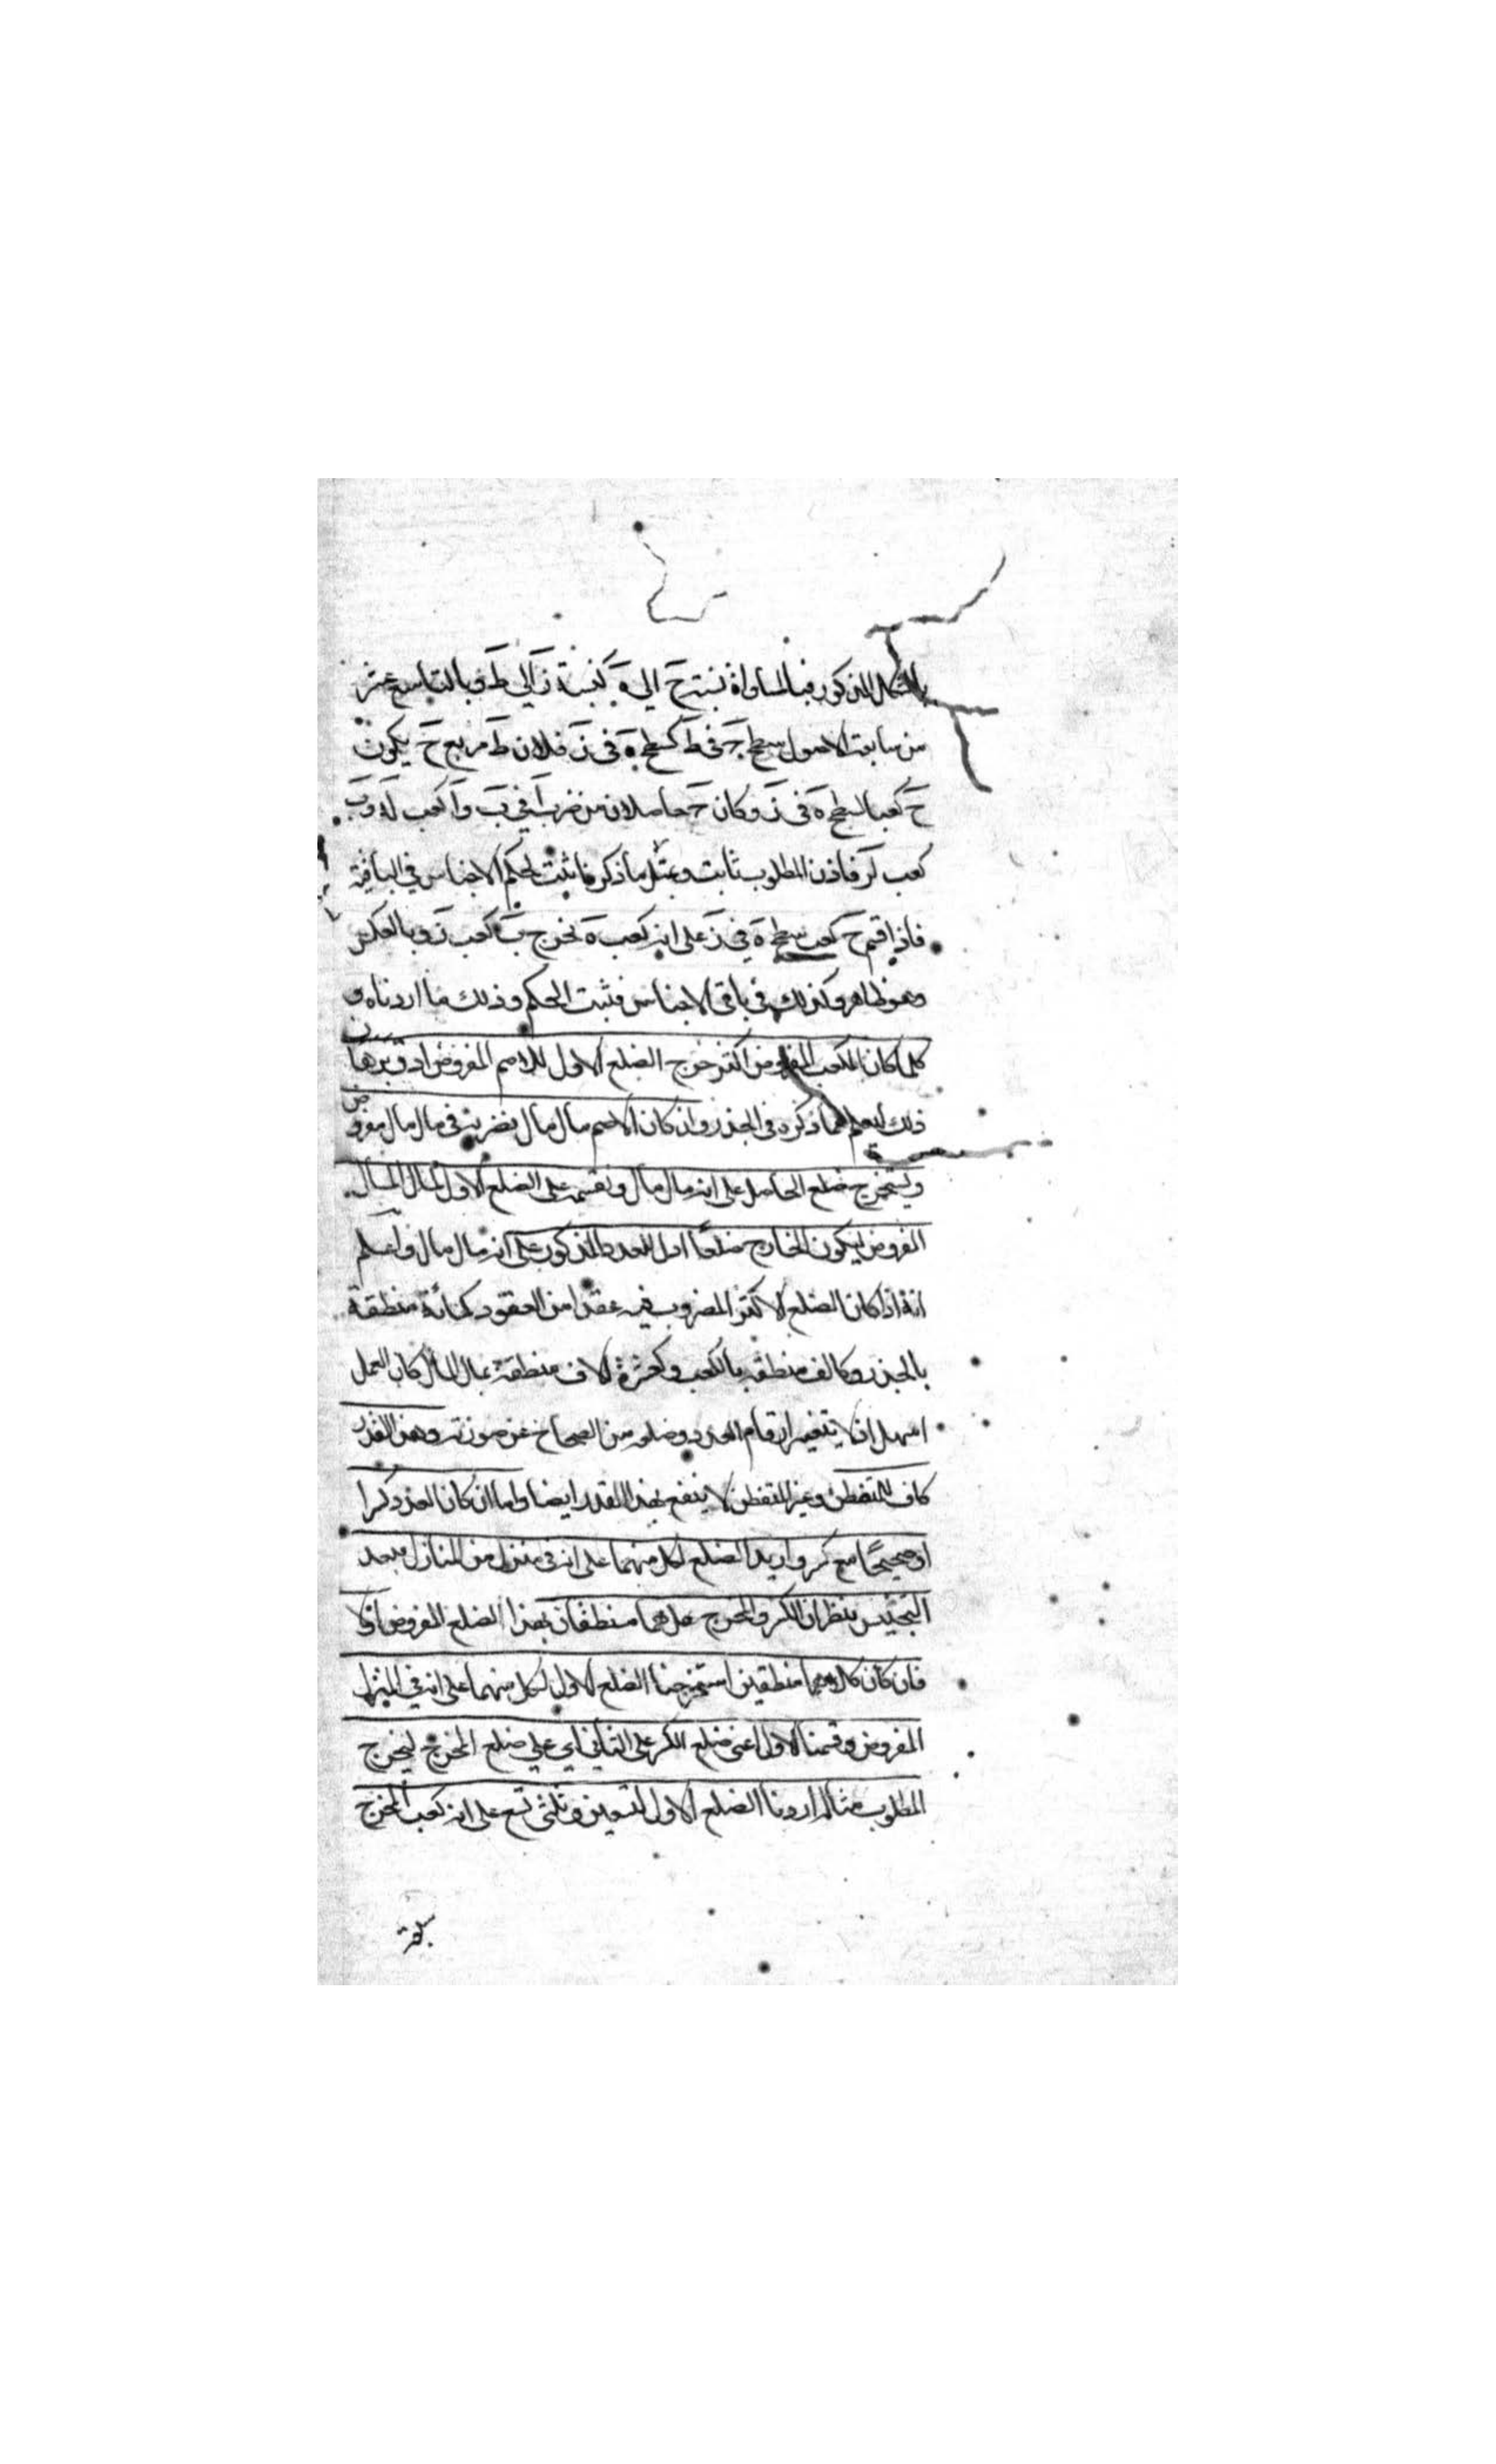 بالشكل المذكور فبالمساواة نسبة ح الى ه كنسبة ز الى ط فبالتاسع عشر
من سابعة الاصول سطح ح فى ط كسطح ه فى ز فلان ط مربع ح يكون
ح كعبا لسطح ه فى ز وكان ح حاصلا من ضرب ا في ب وا كعب له وب
كعب لز فاذن المطلوب ثابت وبمثل ما ذكرنا يثبت الحكم الاجناس في الباقية
فاذا قسم ح كعب سطح ه في ز على انه كعب ه يخرج ب كعب ز وبالعكس
وهو ظاهر وكذلك فى باقى الاجناس فثبت الحكم وذلك ما اردناه و
كلما كان المكعب المفروض اكثر خرج الضلع الاول للاصم المفروض ادق برهان
ذلك ليعلم مما ذكره فى الجذر وان كان الاصم مال مال نضربه فى مال مال مفروض
ويستخرج ضلع الحاصل على انه مال مال ونقسمه على الضلع الاول لمال المال
المفروض ليكون الخارج ضلعا اول للعدد المذكور على انه مال مال واعلم
انه اذا كان الضلع الاكثر المضروب فيه عقدا من العقود كمائة منطقة
بالجذر وكالف منطقه بالكعب وكعشرة الاف منطقة بمال المال كان العمل
اسهل اذ لا يتغير ارقام العدد وضلعه من الصحاح عن صورته وهذا القدر
كاف للمتفطن وغير المتفطن لا ينتفع بهذا القدر ايضا واما ان كان العدد كسرا
او صحيحا مع كسر واريد الضلع لكل منهما على انه فى منزل من المنازل فبعد
التجنيس ينظر ان الكسر والمخرج هل هما منطقان بهذا الضلع المفروض اولا
فان كان كلاهما منطقين استخرجنا الضلع الاول لكل منهما على انه في المنزل
المفروض وقسمنا الاول اعنى ضلع الكسر على الثانى اي على ضلع المخرج ليخرج
المطلوب مثاله اردنا الضلع الاول لتسعين وثلثى تسع على انه كعب المخرج